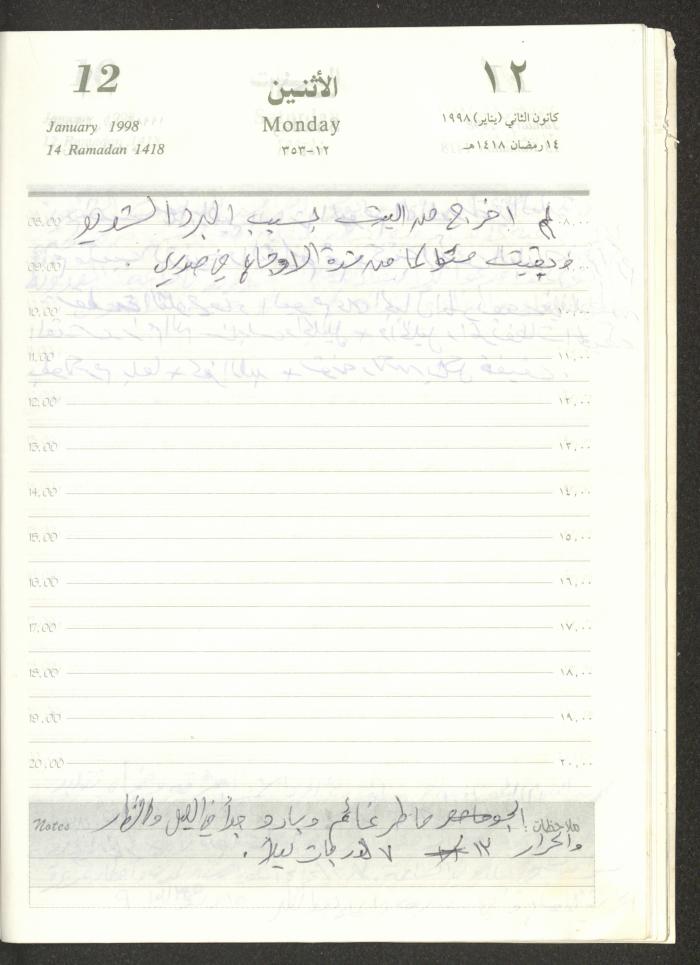 12 الأثنين ١٢
January 1998 Monday كانون الثاني (يناير) ١٩٩٨
14 Ramadan 1418 ٣٥٣-١٢ ١٤ رمضان ١٤١٨هـ
لم اخرج من البيت بسبب البرد الشديد
08.00 ٨,٠٠
وبقيت متوالما من شدة الاوجاع في صدري .
09.00 ٩,٠٠
10.00 ١٠,٠٠
11.00 ١١,٠٠
12.00 ١٢,٠٠
13.00 ١٣,٠٠
14.00 ١٤,٠٠
15.00 ١٥,٠٠
16.00 ١٦,٠٠
17.00 ١٧,٠٠
18.00 ١٨,٠٠
19.00 ١٩,٠٠
20.00 ٢٠,٠٠
Notes ملاحظات : الجو ماطر غائم وبارد جداً في الليل والنهار
والحرار ١٢ ٧ درجات ليلاً .